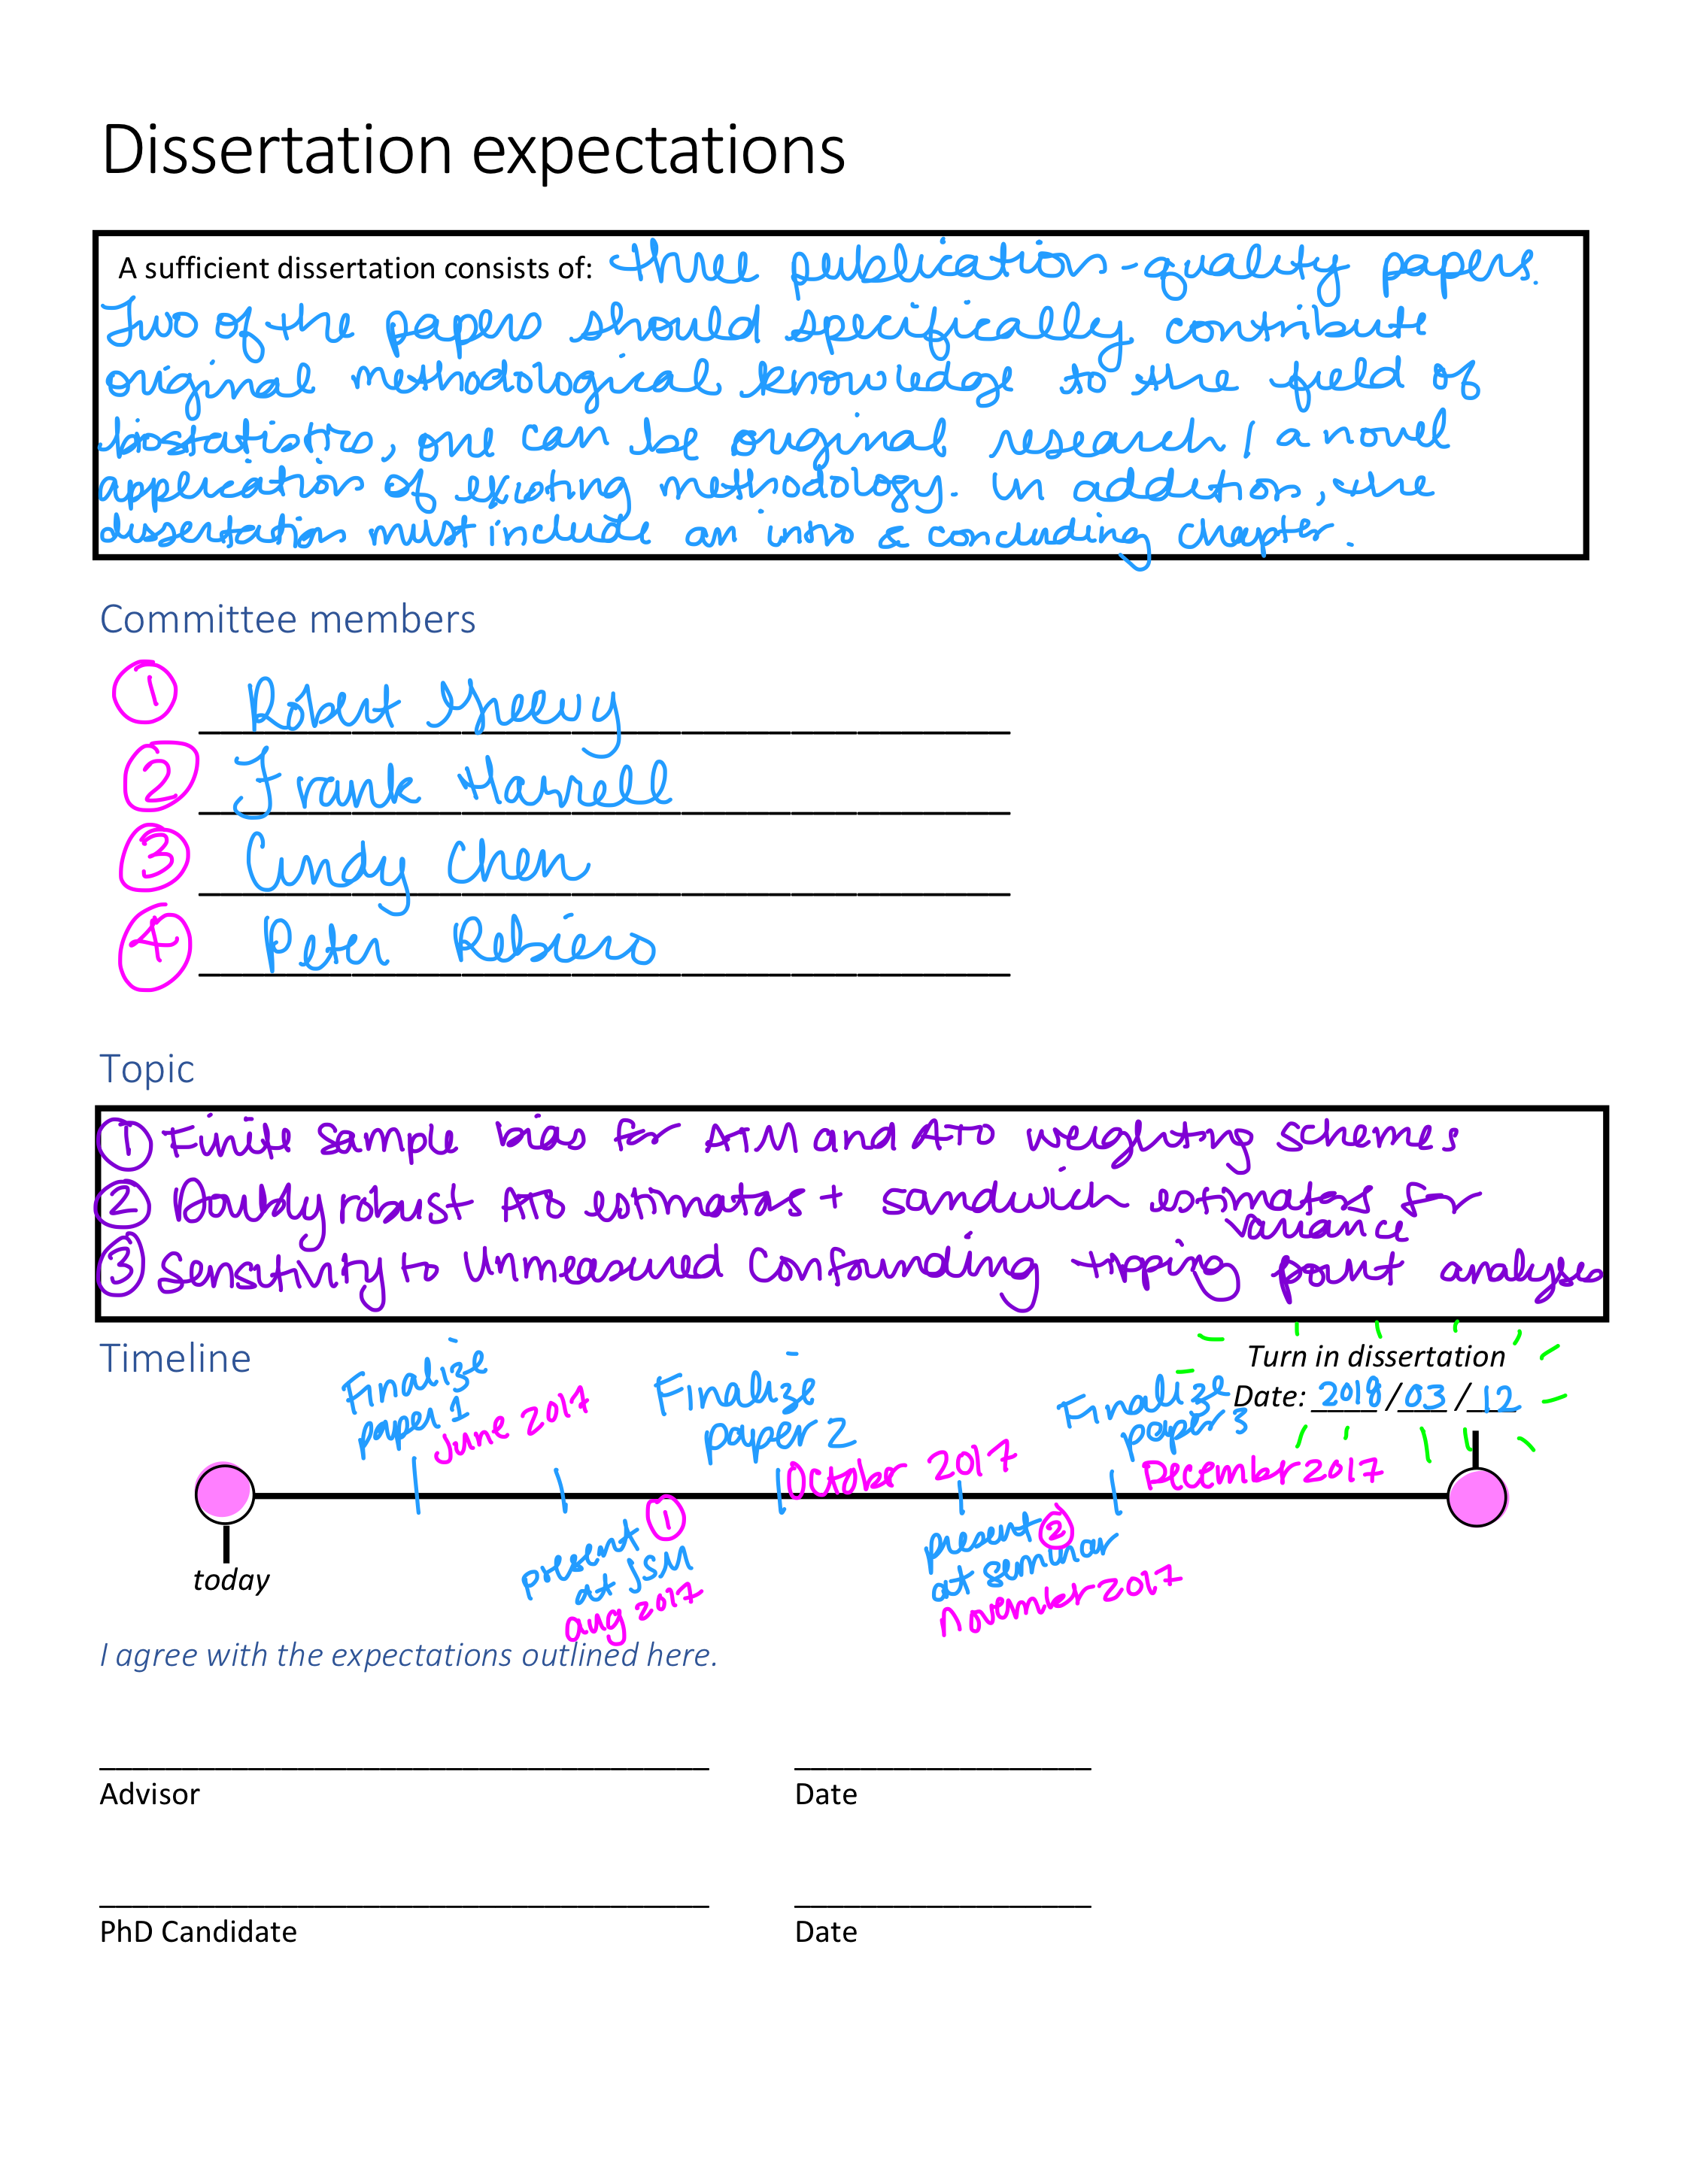 Dissertation expectations
A sufficient dissertation consists of: three publication-quality papers.
Two of the papers should specifically contribute
original methodological knowledge to the field of
biostatistics, one can be original research / a novel
application of existing methodology. In addition, the
dissertation must include an intro & concluding chapter.
Committee members
1 Robert Greevy
2 Frank Harrell
3 Cindy Chen
4 Peter Rebiero
Topic
1 Finite sample bias for ATM and ATO weighting schemes
2 Doubly robust ATO estimators + sandwich estimators for
variance
3 Sensitivity to unmeasured confounding tipping point analyses
Timeline
Finalize
paper 1
June 2017
Finalize
paper 2
October 2017
Finalize
paper 3
December 2017
Turn in dissertation
Date: 2018/03/12
today
present 1
at JSM
aug 2017
present 2
at seminar
November 2017
I agree with the expectations outlined here.
Advisor Date
PhD Candidate Date